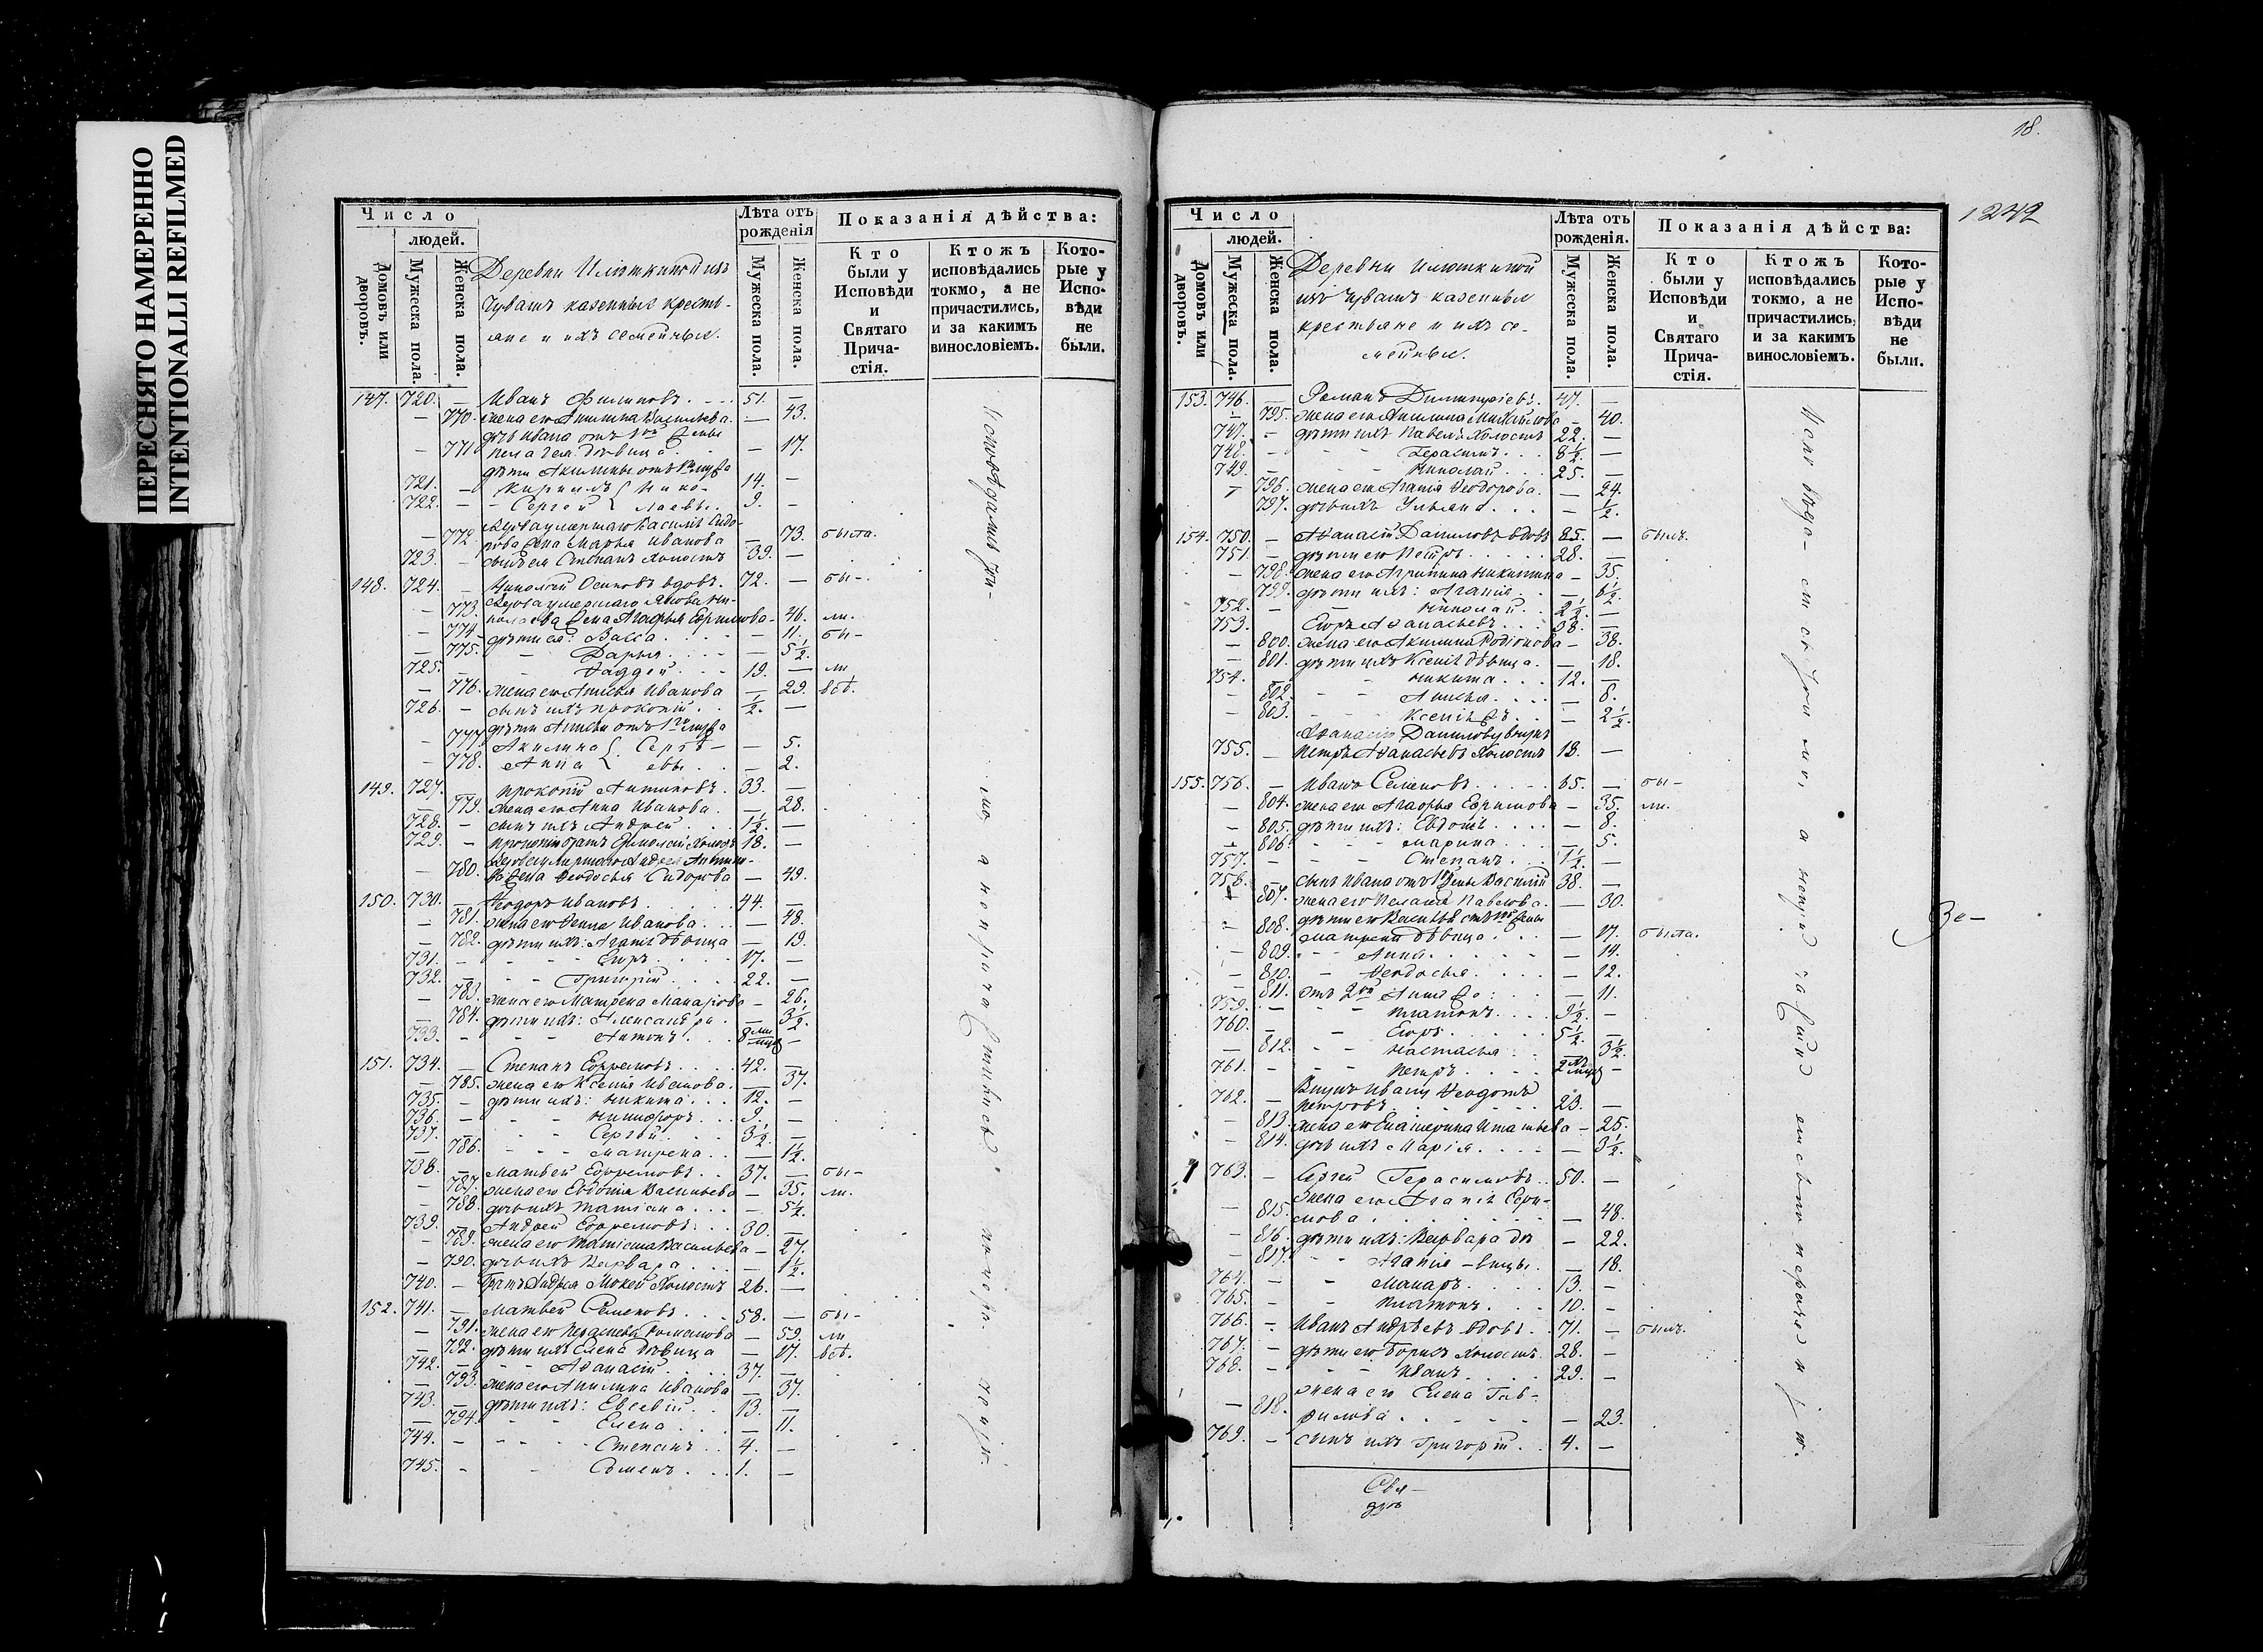 ПЕРЕСНЯТО НАМЕРЕННО
INTENTIONALLI REFILMED
Число
людей.
Домовъ или дворовъ.
Мужеска пола.
Женска пола.
Деревни Илюткиной изъ
Чувашъ казенные кресть-
яне и ихъ семейные.
Лѣта отъ рожденія
Мужеска пола.
Женска пола.
Показанія дѣйства:
Кто были у Исповѣди и Святаго Прича-стія.
Ктожъ исповѣдались токмо, а не причастились, и за какимъ винословіемъ.
Кото-рые у Испо-вѣди не были.
147. 720. — Иванъ Филиповъ. 51. —
— 770. жена его Акилина Васильева. — 43.
дочь Ивана отъ 1й жены
— 771 Пелагея дѣвица — 17.
дѣти Акилины отъ 1го мужа
721. — Кирилъ Нико- 14. —
722. — Сергей лаевы. 9. —
Вдова умершаго Василія Сидо-
— 772. рова жена Марья Иванова — 73. была.
723. — сынъ ея Степанъ холостъ 39. —
148. 724. — Николай Осиповъ вдовъ. 72. — бы-
Вдова умершаго Якова Ни-
— 773. колаева жена Агафья Ефимова — 46. ли.
— 774 дѣти ея: Васса — 11. бы-
— 775. — Дарья — 5½.
725. — Фаддей 19. — ли
— 776. жена его Анисья Иванова — 29. всѣ.
726. — сынъ ихъ Прокопій ½. —
дѣти Анисьи отъ 1го мужа
— 777 Акилина Сергѣ- — 5.
— 778. Анна евы — 2.
149. 727. — Прокопій Антиповъ. 33. —
— 779. жена его Анна Иванова. — 28.
728. — сынъ ихъ Андрей 1½. —
729. — Прокопія братъ Ермолай холостъ 18. —
Вдова умершаго Андрея Антипо-
— 780. ва жена Феодосья Сидорова — 49.
150. 730. — Феодоръ Ивановъ. 44. —
— 781. жена его Фекла Иванова. — 48.
— 782. дѣти ихъ: Агапія дѣвица — 19.
731. — Егоръ 17. —
732. — Григорій 22. —
— 783. жена его Матрена Макарова — 26.
— 784. дѣти ихъ: Александра — 3½.
733. — Антонъ 8 ми мцѣ —
151. 734. — Степанъ Ефремовъ 42. —
— 785. жена его Ксенія Иванова. — 37.
735. — дѣти ихъ: Никита 12. —
736. — Никифоръ 9. —
737. — Сергѣй 3½. —
— 786. Матрена — 1½.
738. — Матвей Ефремовъ 37. — бы-
— 787. жена его Евдокія Васильева — 35. ли.
— 788. дочь ихъ Татіана — 5½.
739. — Андрей Ефремовъ 30. —
— 789. жена его Татіана Васильева — 27.
— 790. дочь ихъ Варвара — 1½.
740. — братъ Андрея Мокей холостъ 26. —
152. 741. — Матвей Семеновъ 58. — бы-
— 791. жена его Пелагея Романова — 59. ли
— 792. дѣти ихъ Елена дѣвица — 17. всѣ.
742. — Афанасій 37. —
— 793. жена его Акилина Иванова — 37.
743. — дѣти ихъ: Евсевій 13. —
— 794. Елена — 11.
744. — Степанъ 4. —
745. — Семенъ 1. —
18.
1242
Число
людей.
Домовъ или дворовъ.
Мужеска пола.
Женска пола.
Деревни Илюткиной
изъ Чувашъ казенные
крестьяне и ихъ се-
мейные.
Лѣта отъ рожденія.
Мужеска пола.
Женска пола.
Показанія дѣйства:
Кто были у Исповѣди и Святаго Прича-стія.
Ктожъ исповѣдались токмо, а не причастились, и за какимъ винословіемъ.
Кото-рые у Испо-вѣди не были.
153. 746. — Романъ Димитріевъ. 47. —
— 795. жена его Акилина Михайлова — 40.
747. — дѣти ихъ Павелъ холостъ 22. —
748. — Герасимъ 8½. —
749. — Николай 25. —
— 796. жена его Агапія Феодорова. — 24.
— 797. дочь ихъ Ульяна — ½.
154. 750. — Афанасій Даниловъ вдовъ 85. — былъ.
751. — дѣти его Петръ 28. —
— 798. жена его Агрипина Никитина — 35.
— 799. дѣти ихъ: Агапія — 6½.
752. — Николай 2½. —
753. Егоръ Афанасьевъ 38. —
— 800. жена его Акилина Родионова — 38.
— 801. дѣти ихъ Ксенія дѣвица. — 18.
754. — Никита 12. —
— 802. Анисья — 8.
— 803. Ксенія — 2½.
Афанасію Данилову внукъ
755. — Петръ Афанасьевъ холостъ 18. —
155. 756. — Иванъ Семеновъ 65. — бы-
— 804. жена его Агафья Ефимова — 35. ли.
— 805. дѣти ихъ: Евдокія — 8.
— 806. Марина — 5.
757. — Степанъ 1½. —
758. — сынъ Ивана отъ 1й жены Василій 38. —
— 807. жена его Пелагія Павлова. — 30.
дѣти его Василья отъ 1й жены
— 808. Матрена дѣвица — 17. была.
— 809. Анна — 14.
— 810. Феодосья — 12.
— 811. отъ 2й — 11.
759. — Платонъ 9½. —
760. — Егоръ 5½. —
— 812. Настасья — 3½.
761. — Петръ 2хъ мцѣ —
Внукъ Ивану Феодотъ
762. — Петровъ 23. —
— 813. жена его Екатерина Игнатьева — 25.
— 814. дочь ихъ Марія — 3½.
763. — Сергей Герасимовъ 50. —
жена его Агапія Ефи-
— 815. мова — 48.
— 816. дѣти ихъ: Варвара дѣ — 22.
— 817. Агапія — вицы. — 18.
764. — Макаръ 13. —
765. — Платонъ 10. —
766. — Иванъ Андрѣевъ вдовъ. 71. — былъ.
767. — дѣти его Борисъ холостъ 28. —
768. — Иванъ 29. —
жена его Елена Гав-
— 818. рилова — 23.
769. — сынъ ихъ Григорій 4. —